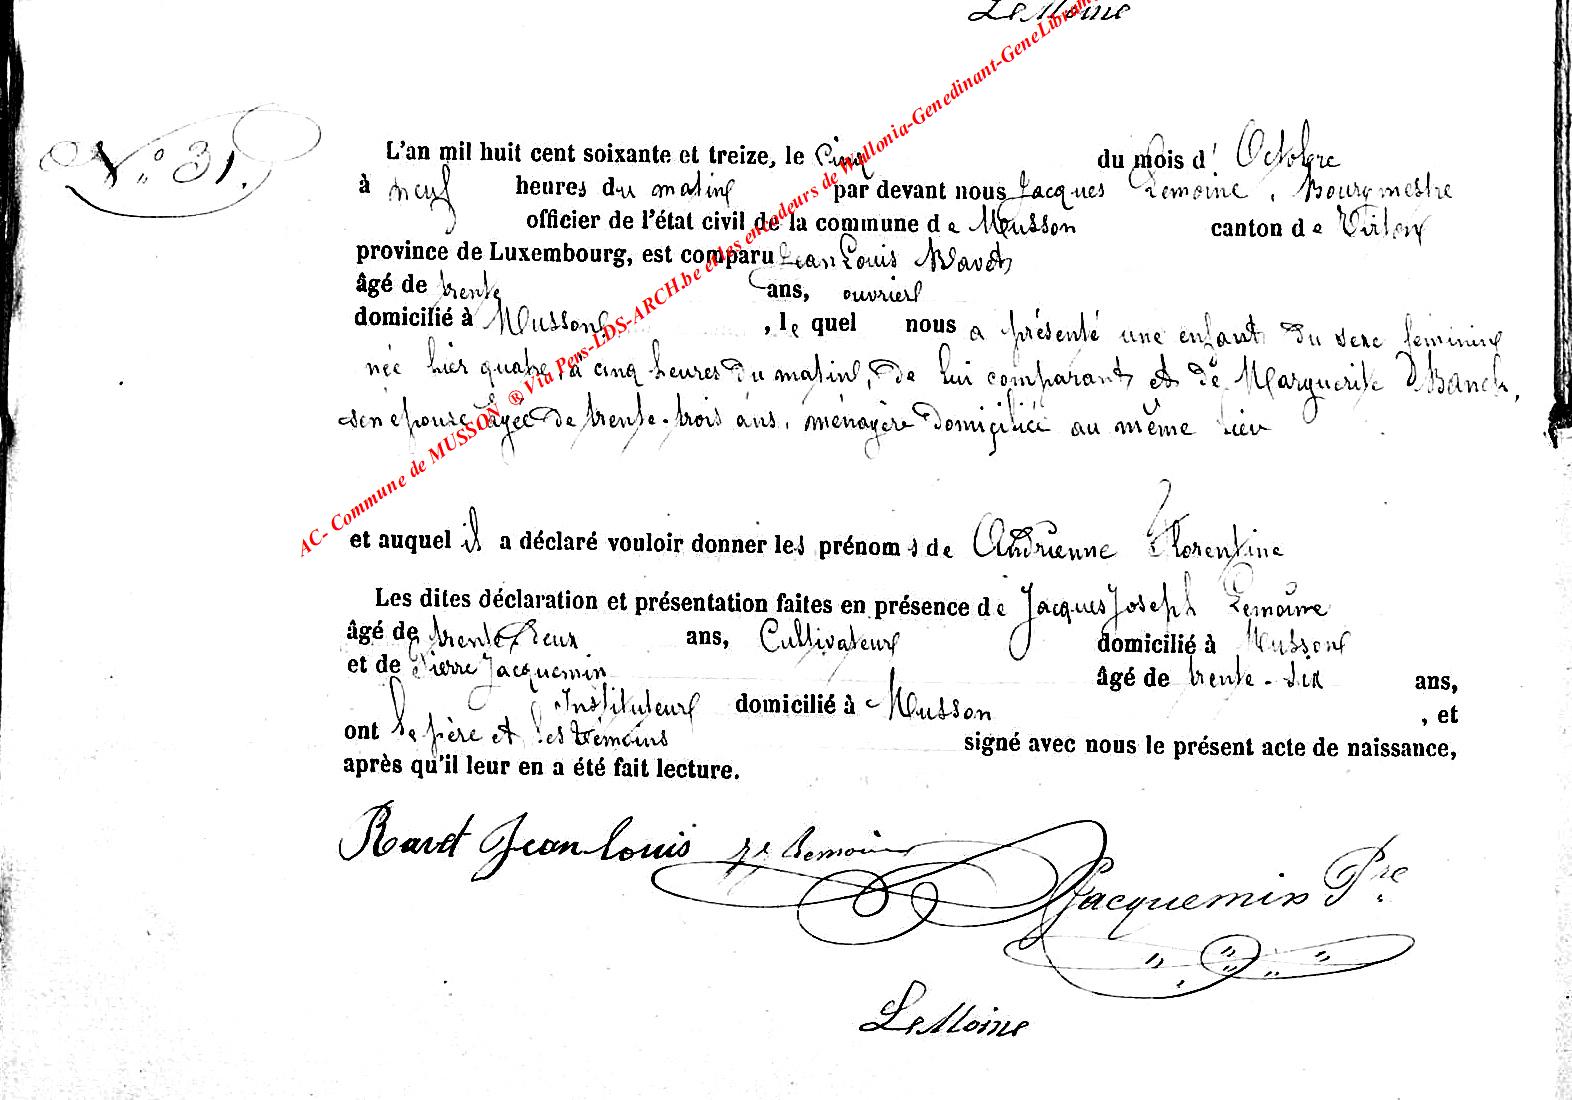 Le Moine
N° 31.
L'an mil huit cent soixante et treize, le cinq du mois d' Octobre
à neuf heures du matin par devant nous Jacques Lemoine, Bourgmestre
officier de l'état civil de la commune de Musson canton de Virton
province de Luxembourg, est comparu Jean Louis Ravet
âgé de trente ans, ouvrier
domicilié à Musson, le quel nous a présenté une enfant du sexe feminin
née hier quatre, à cinq heures du matin, de lui comparant et de Marguerite
son épouse âgée de trente-trois ans, ménagère domiciliée au même lieu
et auquel il a déclaré vouloir donner les prénoms de Andrienne Florentine
Les dites déclaration et présentation faites en présence de Jacques Joseph Lemoine
âgé de trente deux ans, Cultivateur domicilié à Musson
et de Pierre Jacquemin âgé de trente-six ans,
Instituteur domicilié à Musson, et
ont le père et les témoins signé avec nous le présent acte de naissance,
après qu'il leur en a été fait lecture.
Ravet Jean louis Lemoine
Jacquemin Pre
Le Moine
AC- Commune de MUSSON ® Via Pers-LDS-ARCH.be et les encodeurs de Wallonia-Genedinant-GeneLibram